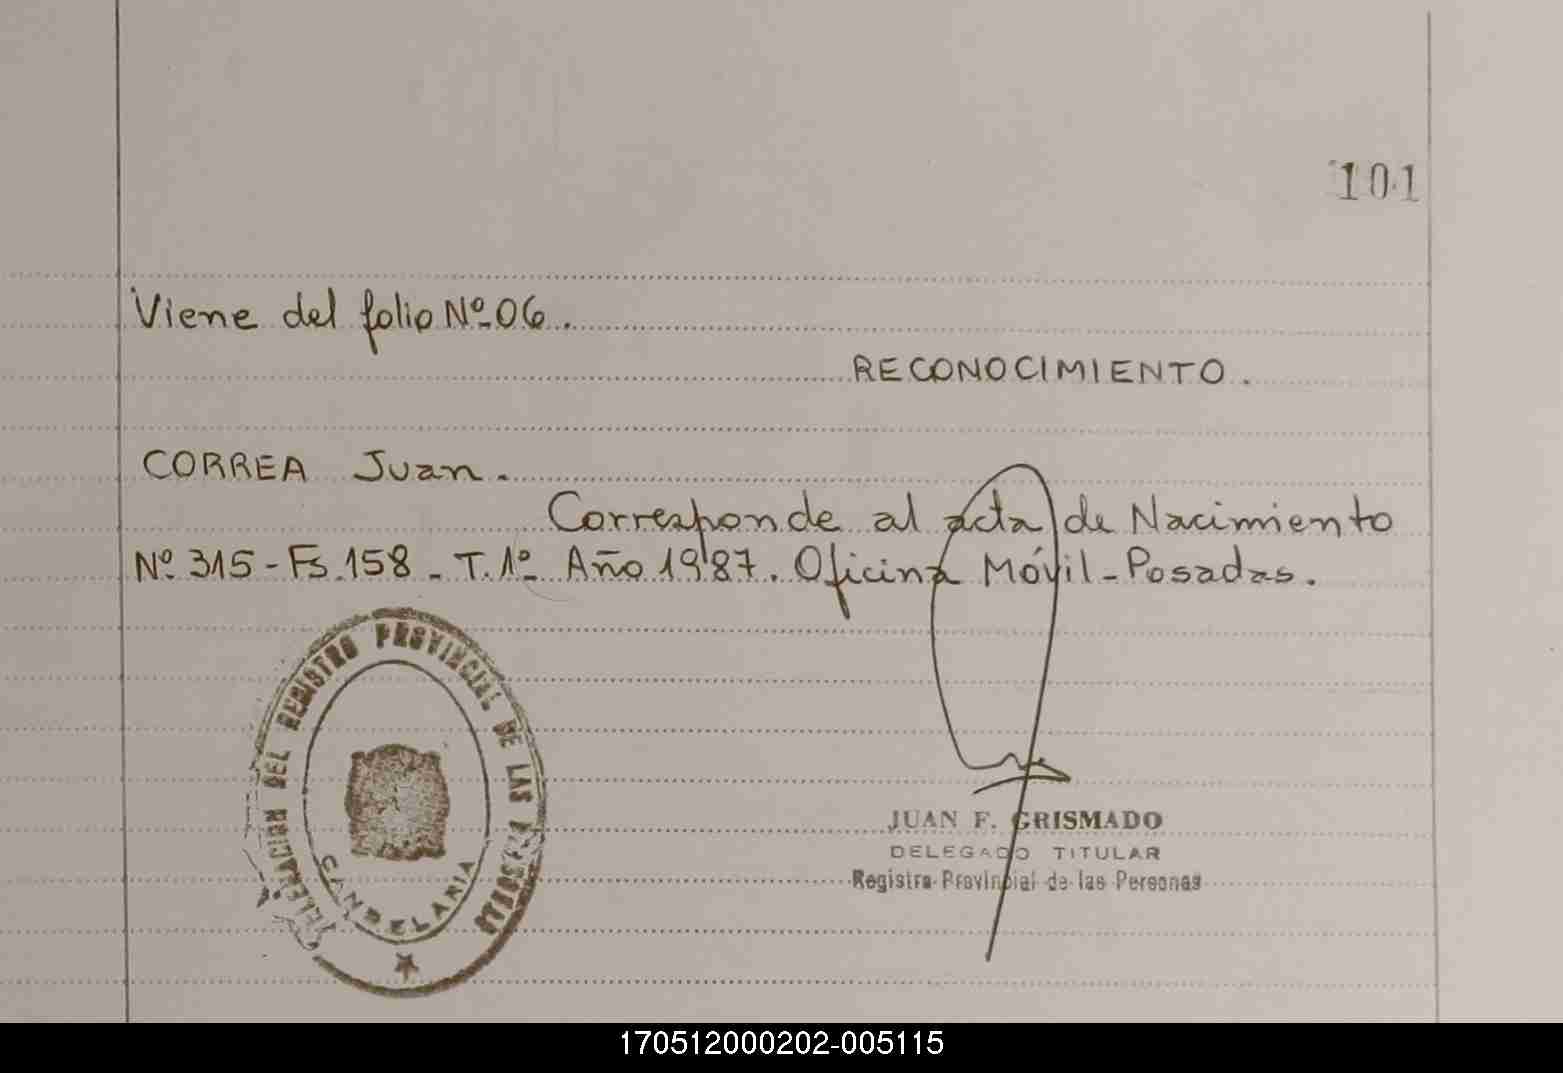 101
Viene del folio Nº 06.
RECONOCIMIENTO.
CORREA Juan.
Corresponde al acta de Nacimiento
Nº 315 - Fs. 158 - T. 1º Año 1987. Oficina Móvil - Posadas.
DELEGACION DEL REGISTRO PROVINCIAL DE LAS PERSONAS
CANDELARIA
JUAN F. GRISMADO
DELEGADO TITULAR
Registro Provincial de las Personas
170512000202-005115